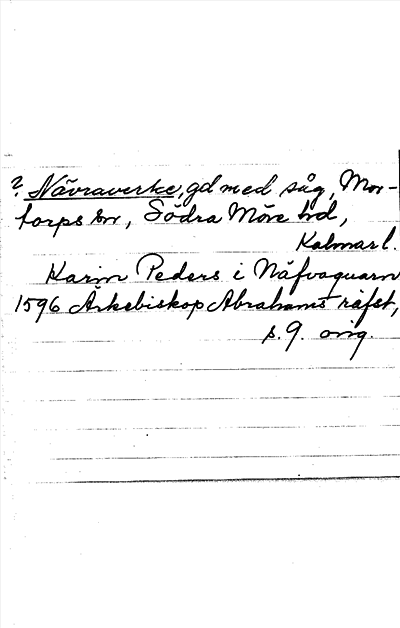 ? Nävraverke, gd med såg, Mor-
torps sn, Södra Möre hd,
Kalmar l.
Karin Peders i Näfvaquarn
1596 Ärkebiskop Abrahams räfst,
s. 9. orig.